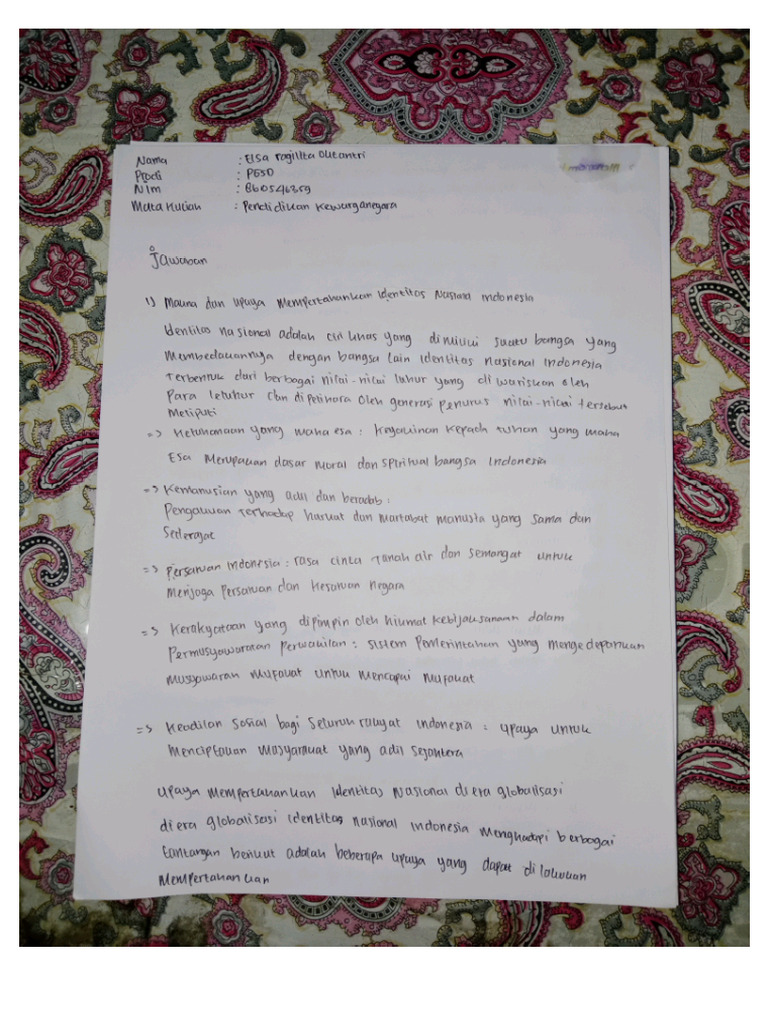 Nama : Elsa
Prodi : PGSD
Nim :
Mata Kuliah : Pendidikan Kewarganegara
Jawaban
1) Makna dan upaya Mempertahankan Identitas Nasional Indonesia
Identitas nasional adalah ciri khas yang dimiliki suatu bangsa yang
Membedakannya dengan bangsa lain identitas nasional Indonesia
Terbentuk dari berbagai nilai-nilai luhur yang di wariskan oleh
Para leluhur dan dipelihara oleh generasi penurus nilai-nilai tersebut
Meliputi
=> Ketuhanaan yang maha esa : Keyakinan kepada tuhan yang maha
Esa Merupakan dasar moral dan spiritual bangsa Indonesia
=> Kemanusian yang adil dan beradab :
Pengakuan Terhadap harkat dan martabat manusia yang sama dan
Sederajat
=> Persatuan Indonesia : rasa cinta Tanah air dan semangat untuk
Menjaga Persatuan dan Kesatuan negara
=> Kerakyataan yang dipimpin oleh hikmat kebijaksanaan dalam
Permusyawaratan Perwakilan : sistem Pemerintahan yang mengedepankan
musyawaran mufakat untuk mencapai mufakat
=> Keadilan sosial bagi seluruh rakyat indonesia : upaya untuk
Menciptakan Masyarakat yang adil sejahtera
upaya mempertahankan Identitas Nasional di era globalisasi
di era globalisasi identitas nasional indonesia menghadapi berbagai
tantangan berikut adalah beberapa upaya yang dapat di lakukan
Mempertahankan